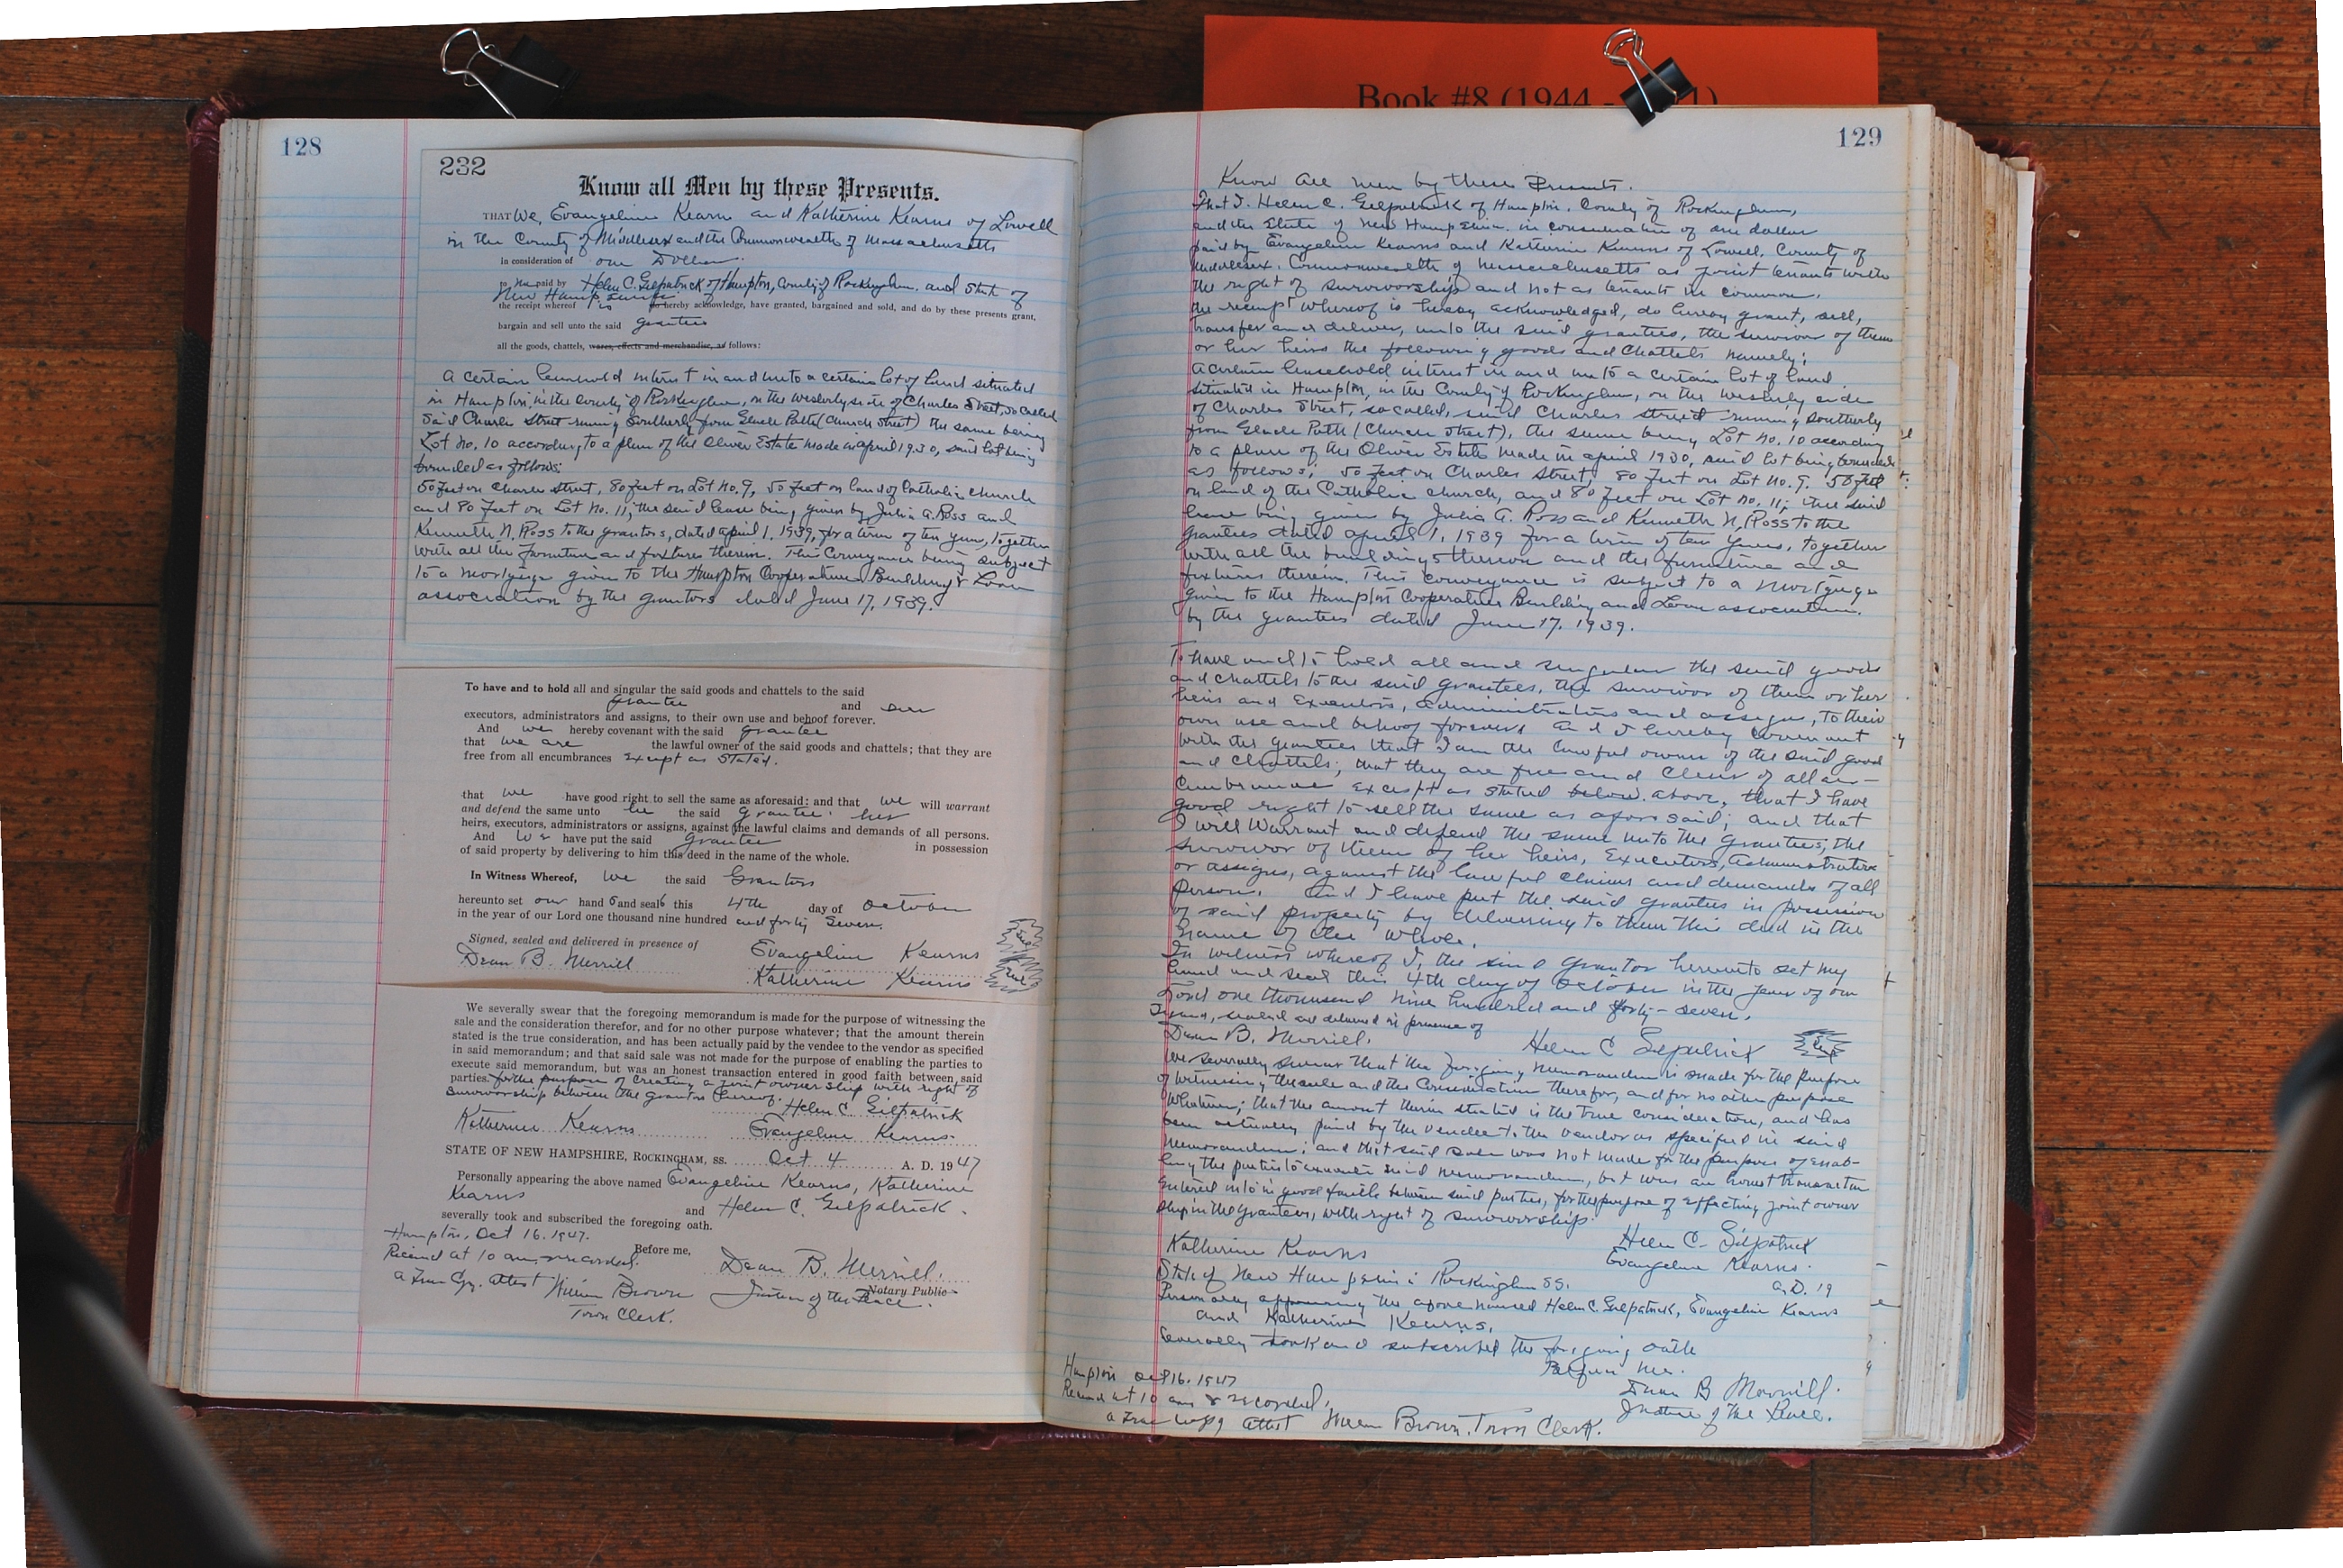 Book #8 (1944 - 1)
128
232
Know all Men by these Presents.
THAT We, Evangeline Kearns and Katherine Kearns of Lowell
in the County of Middlesex and the Commonwealth of Massachusetts
in consideration of one Dollar.
to me paid by Helen C. Gilpatrick of Hampton, County of Rockingham, and State of
New Hampshire
the receipt whereof is do hereby acknowledge, have granted, bargained and sold, and do by these presents grant,
bargain and sell unto the said grantee
all the goods, chattels, wares, effects and merchandise, as follows:
A certain leasehold interest in and unto a certain lot of land situated
in Hampton, in the County of Rockingham, on the westerly side of Charles Street, so called
said Charles Street running Southerly from Glade Path (Church Street) the same being
Lot No. 10 according to a plan of the Oliver Estate made in April 1930, said lot being
bounded as follows:
50 feet on Charles Street, 80 feet on Lot No. 9, 50 feet on land of Catholic church
and 80 feet on Lot No. 11; the said lease being given by Julia A. Ross and
Kenneth N. Ross to the grantors, dated April 1, 1939, for a term of ten years, together
with all the furniture and fixtures therein. This Conveyance being subject
to a mortgage given to the Hampton Cooperative Building & Loan
association by the grantors dated June 17, 1939.
To have and to hold all and singular the said goods and chattels to the said
grantee and her
executors, administrators and assigns, to their own use and behoof forever.
And we hereby covenant with the said grantee
that we are the lawful owner of the said goods and chattels; that they are
free from all encumbrances except as stated.
that we have good right to sell the same as aforesaid: and that we will warrant
and defend the same unto the said grantee her
heirs, executors, administrators or assigns, against the lawful claims and demands of all persons.
And we have put the said grantee in possession
of said property by delivering to him this deed in the name of the whole.
In Witness Whereof, we the said Grantors
hereunto set our hands and seals this 4th day of October
in the year of our Lord one thousand nine hundred and forty seven.
Signed, sealed and delivered in presence of
Dean B. Merrill Evangeline Kearns Seal
Katherine Kearns Seal
We severally swear that the foregoing memorandum is made for the purpose of witnessing the
sale and the consideration therefor, and for no other purpose whatever; that the amount therein
stated is the true consideration, and has been actually paid by the vendee to the vendor as specified
in said memorandum; and that said sale was not made for the purpose of enabling the parties to
execute said memorandum, but was an honest transaction entered in good faith between said
parties. for the purpose of creating a joint ownership with right of
survivorship between the grantors thereof.
Helen C. Gilpatrick
Katherine Kearns Evangeline Kearns
STATE OF NEW HAMPSHIRE, ROCKINGHAM, SS. Oct 4 A. D. 1947
Personally appearing the above named Evangeline Kearns, Katherine
Kearns and Helen C. Gilpatrick.
severally took and subscribed the foregoing oath.
Hampton, Oct 16. 1947.
Received at 10 am & recorded. Before me,
a True Copy. attest William Brown Dean B. Merrill.
Town Clerk. Justice of the Peace. Notary Public
129
Know all men by these Presents.
That I. Helen C. Gilpatrick of Hampton, County of Rockingham,
and the State of New Hampshire. in consideration of one dollar
paid by Evangeline Kearns and Katherine Kearns of Lowell, County of
Middlesex, Commonwealth of Massachusetts as joint tenants with
the right of survivorship and not as tenants in common,
the receipt whereof is hereby acknowledged, do hereby grant, sell,
transfer and deliver, unto the said grantees, the survivor of them
or her heirs the following goods and chattels namely;
A certain leasehold interest in and unto a certain lot of land
situated in Hampton, in the County of Rockingham, on the westerly side
of Charles Street, so called, said Charles street running Southerly
from Glade Path (Church Street), the same being Lot No. 10 according
to a plan of the Oliver Estate made in April 1930, said lot being bounded
as follows; 50 feet on Charles Street, 80 feet on Lot No. 9. 50 feet
on land of the Catholic church, and 80 feet on Lot No. 11; the said
lease being given by Julia A. Ross and Kenneth N. Ross to the
grantees dated April 1, 1939 for a term of ten years, together
with all the buildings thereon and the furniture and
fixtures therein. This conveyance is subject to a mortgage
given to the Hampton Cooperative Building and Loan association.
by the grantees dated June 17, 1939.
To have and to hold all and singular the said goods
and chattels to the said grantees, the survivor of them or her
heirs and executors, administrators and assigns, to their
own use and behoof forever. And I hereby covenant
with the grantees that I am the lawful owner of the said good
and chattels; that they are free and clear of all en-
cumbrance except as stated below. above, that I have
good right to sell the same as aforesaid; and that
I will Warrant and defend the same unto the grantees, the
survivor of them of her heirs, Executors, Administrators
or assigns, against the lawful claims and demands of all
person. And I have put the said grantees in possession
of said property by delivering to them this deed in the
name of the whole.
In witness whereof I, the said grantor hereunto set my
hand and seal this 4th day of October in the year of our
Lord one thousand nine hundred and forty-seven.
Signed, sealed and delivered in presence of
Dean B. Merrill. Helen C Gilpatrick Seal
We severally swear that the foregoing memorandum is made for the purpose
of witnessing the sale and the consideration therefor, and for no other purpose
whatever; that the amount therein stated is the true consideration, and has
been actually paid by the vendee to the vendor as specified in said
memorandum; and that said sale was not made for the purpose of enab-
ling the parties to execute said memorandum, but was an honest transaction
entered into in good faith between said parties, for the purpose of effecting joint owner
ship in the grantees, with right of survivorship.
Helen C. Gilpatrick
Katherine Kearns Evangeline Kearns.
State of New Hampshire Rockingham SS. A.D. 19
Personally appearing the above named Helen C. Gilpatrick, Evangeline Kearns
and Katherine Kearns,
Severally took and subscribed the foregoing oath
Before me.
Dean B Merrill.
Justice of the Peace.
Hampton Oct 16. 1947
Received at 10 am & recorded.
a True copy attest William Brown. Town Clerk.